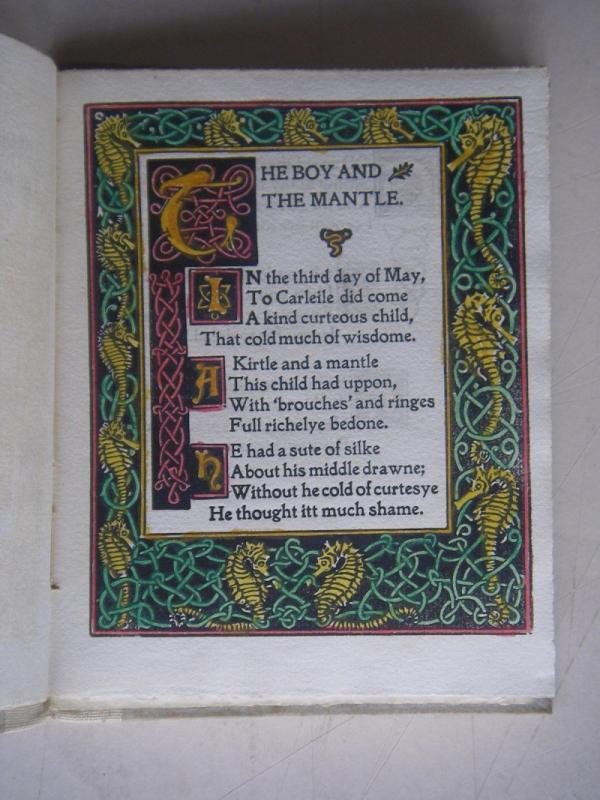 THE BOY AND
THE MANTLE.
IN the third day of May,
To Carleile did come
A kind curteous child,
That cold much of wisdome.
A Kirtle and a mantle
This child had uppon,
With 'brouches' and ringes
Full richelye bedone.
HE had a sute of silke
About his middle drawne;
Without he cold of curtesye
He thought itt much shame.